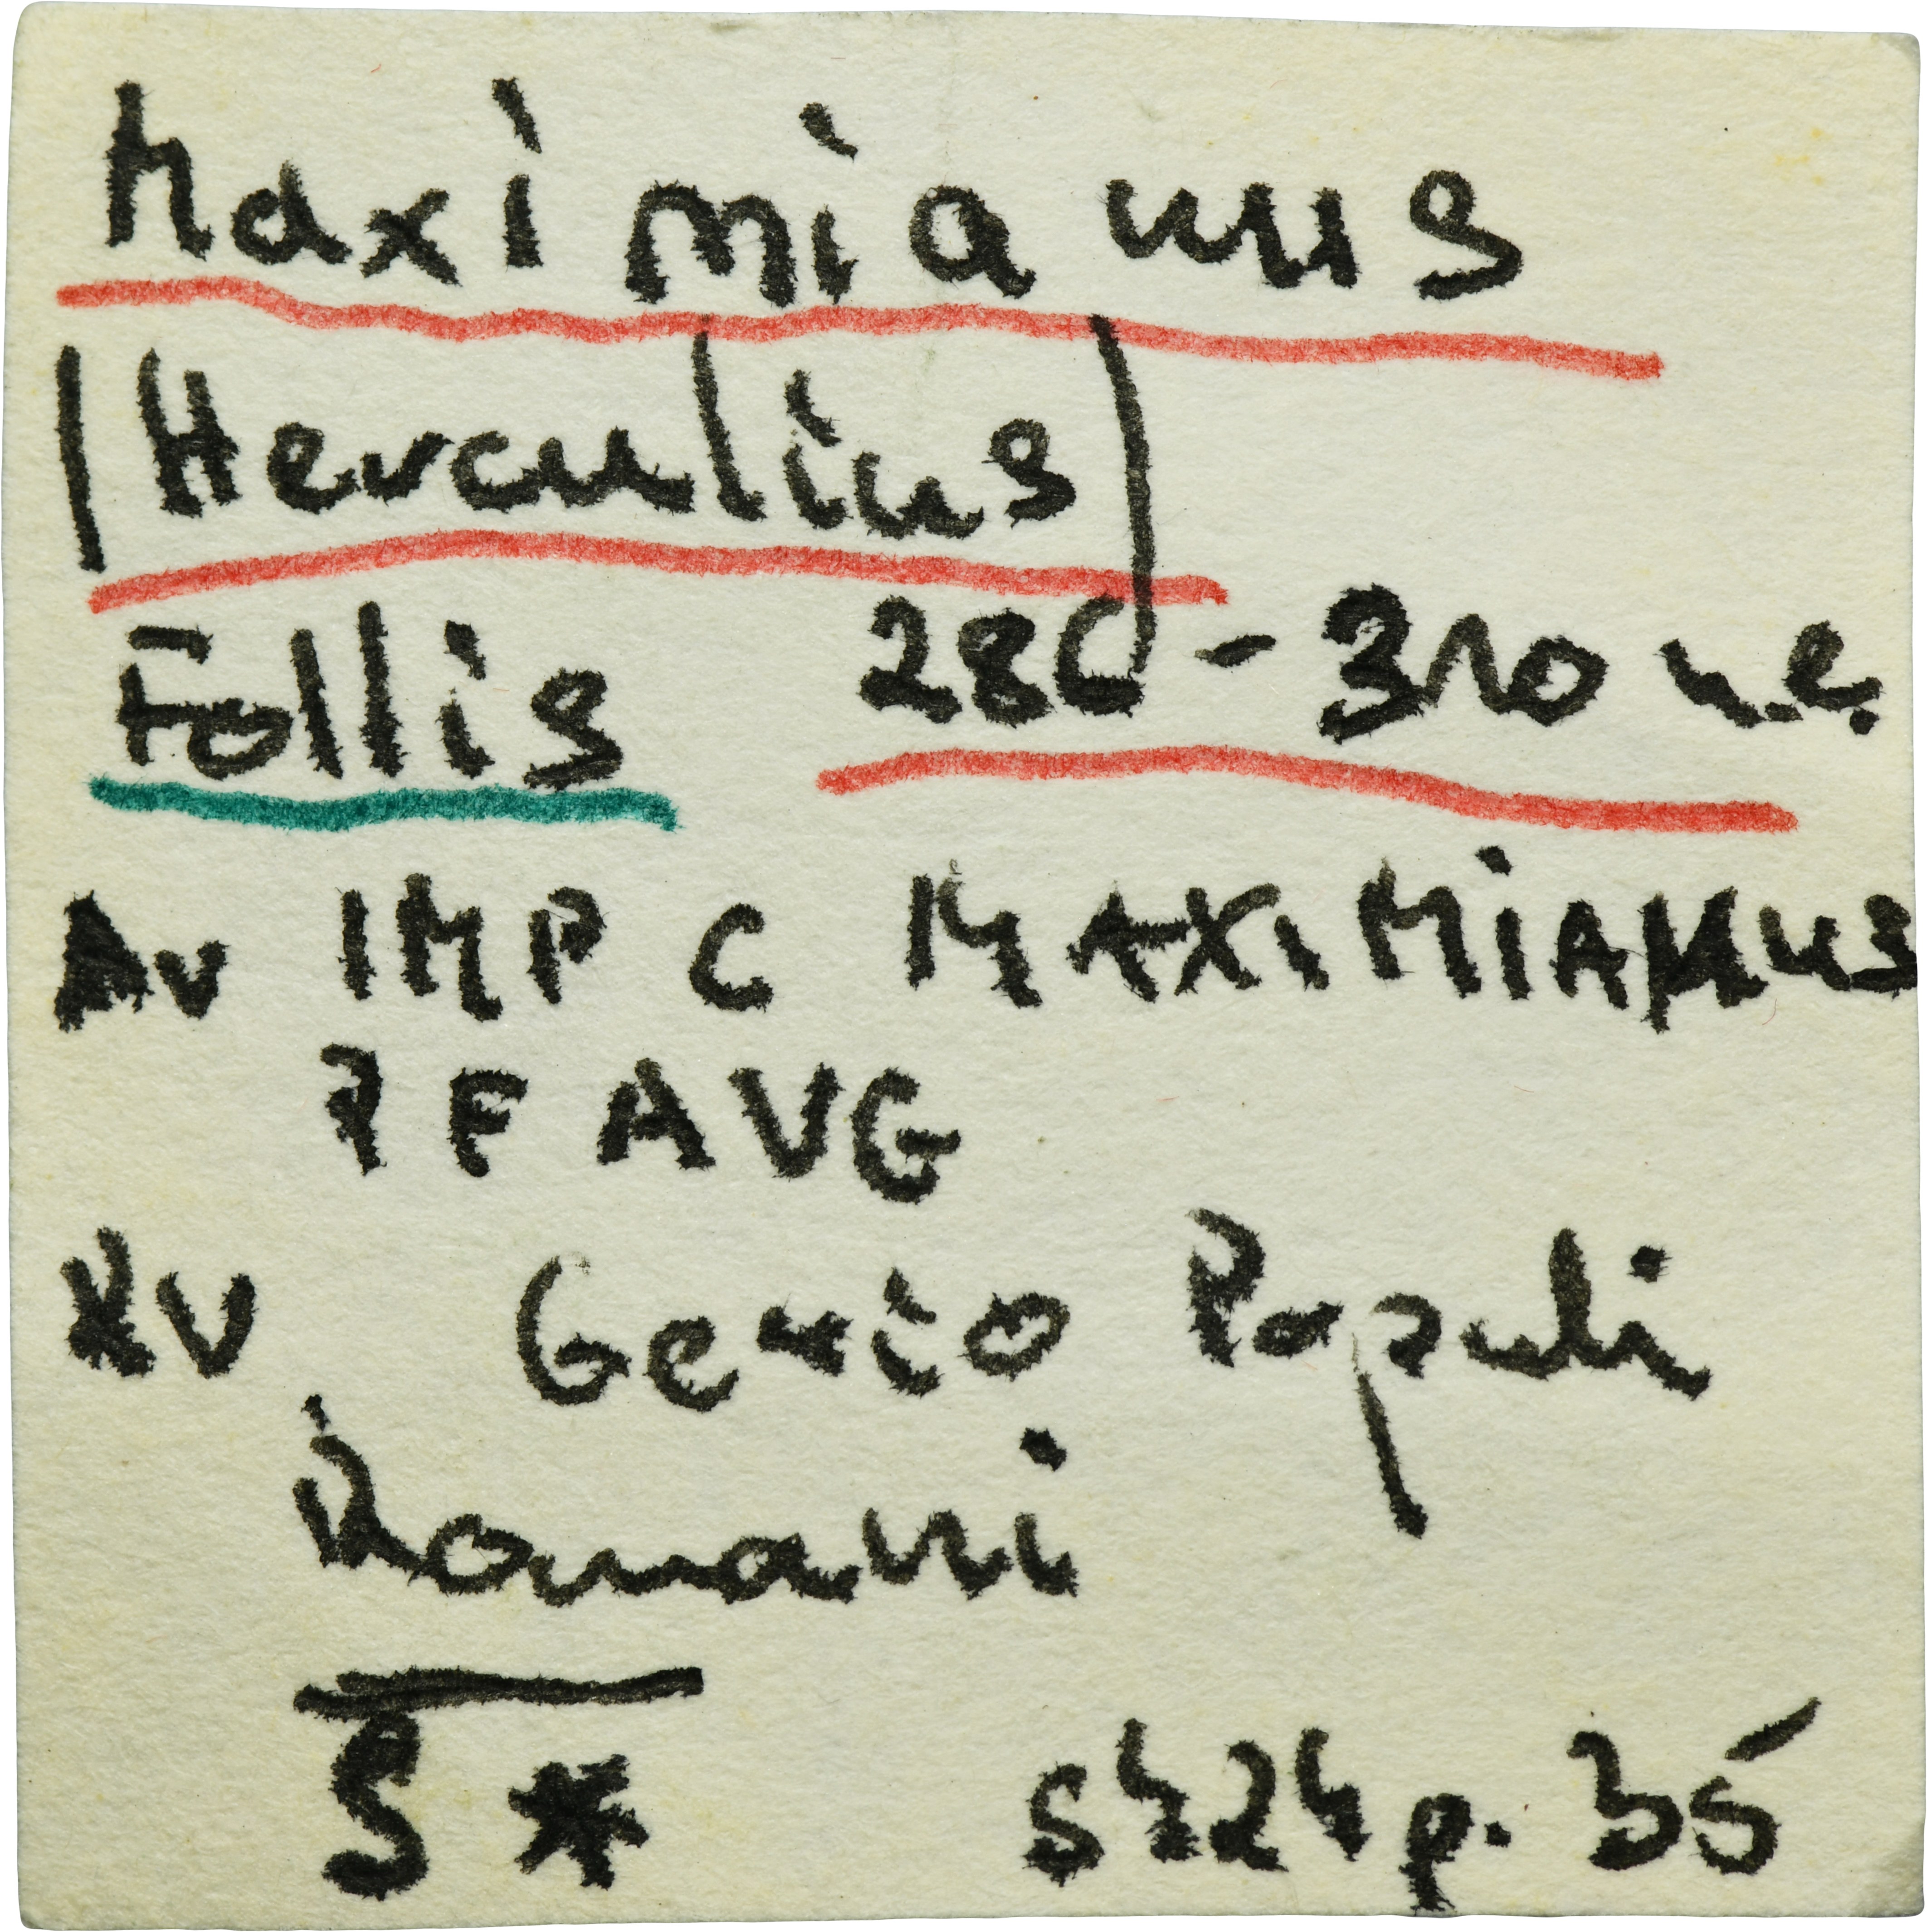 Maximianus
(Herculius)
Follis 286-310 n.e.
Av IMP C MAXIMIANUS
P F AVG
Rv Genio Populi
Romani
S *